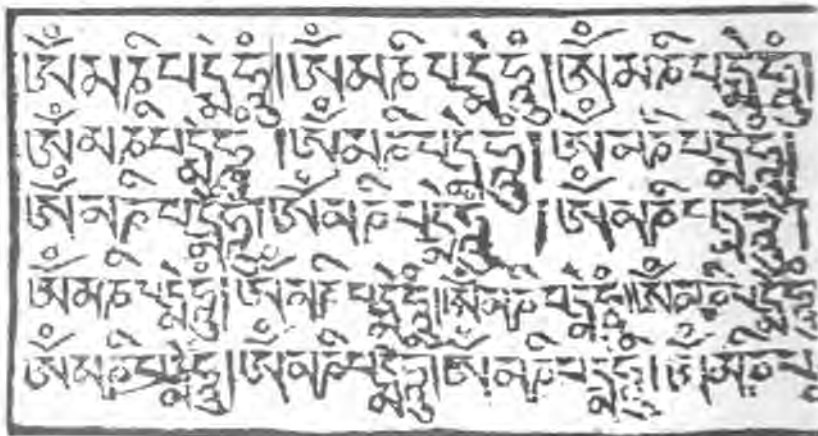 ཨོཾམཎིཔདྨེཧཱུཾ།ཨོཾམཎིཔདྨེཧཱུཾ།ཨོཾམཎིཔདྨེཧཱུཾ།
ཨོཾམཎིཔདྨེཧཱུཾ །ཨོཾམཎིཔདྨེཧཱུཾ།ཨོཾམཎིཔདྨེཧཱུཾ།
ཨོཾམཎིཔདྨེཧཱུཾ།ཨོཾམཎིཔདྨེཧཱུཾ །ཨོཾམཎིཔདྨེཧཱུཾ།
ཨོཾམཎིཔདྨེཧཱུཾ།ཨོཾམཎིཔདྨེཧཱུཾ།ཨོཾམཎིཔདྨེཧཱུཾ།ཨོཾམཎིཔདྨེཧཱུཾ
ཨོཾམཎིཔདྨེཧཱུཾ།ཨོཾམཎིཔདྨེཧཱུཾ།ཨོཾམཎིཔདྨེཧཱུཾ།ཨོཾམཎིཔ